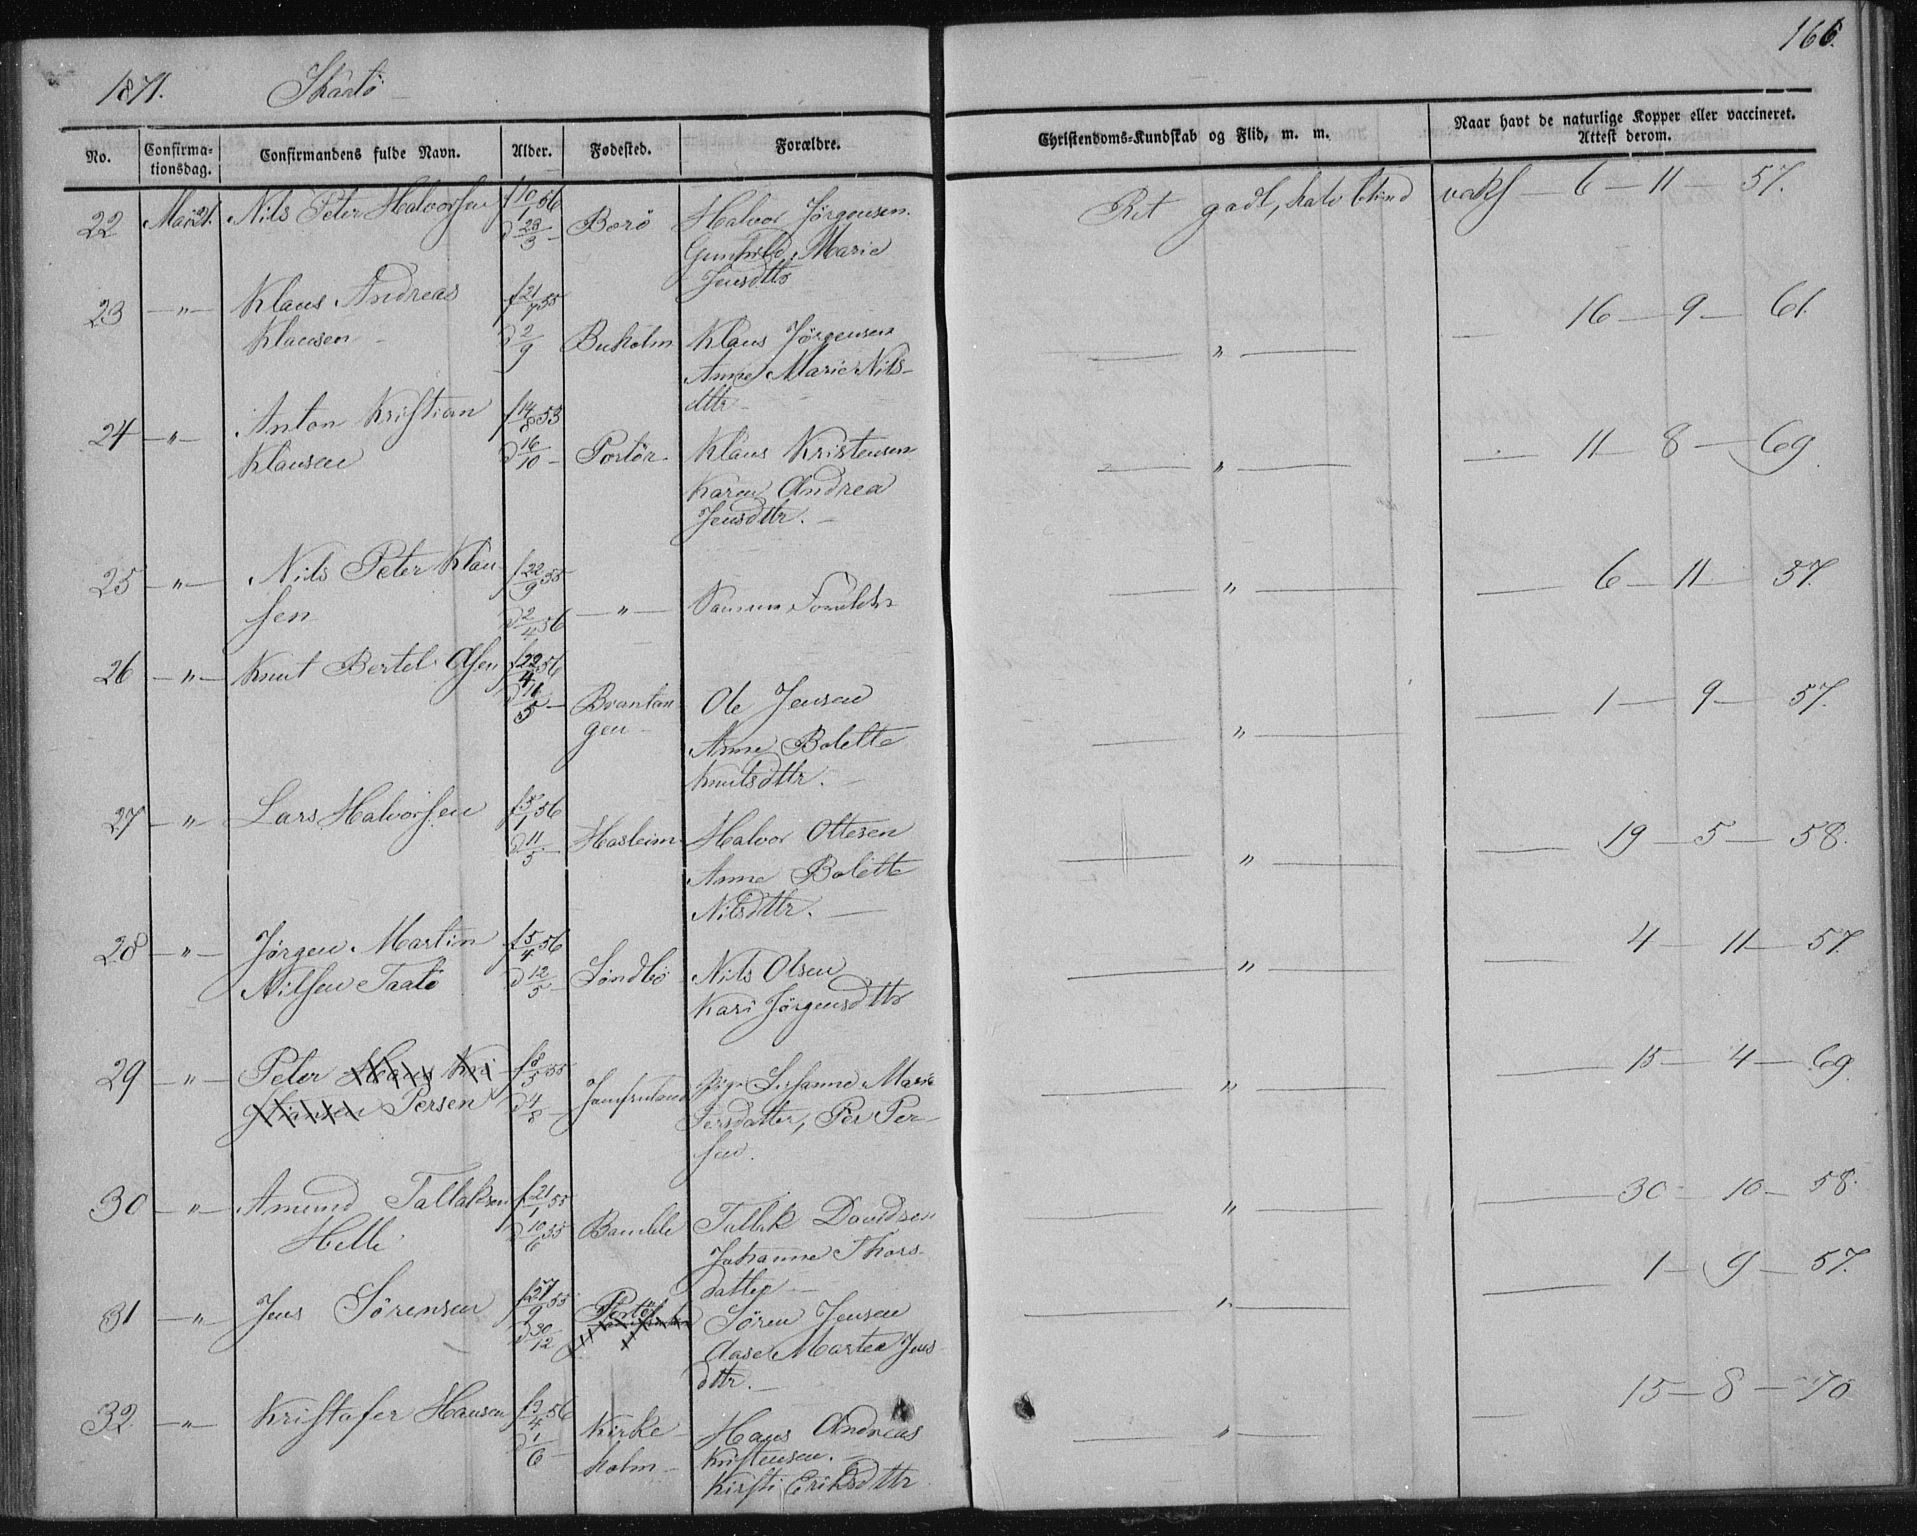 166.
1871. Skaatö
No.
Confirma-
tionsdag.
Confirmandens fulde Navn.
Alder.
Fødested.
Forældre.
Christendoms-Kundskab og Flid, m. m.
Naar havt de naturlige Kopper eller vaccineret.
Attest derom.
22 Mai 21. Nils Peter Halvorsen f 10/1 56 Borö Halvor Jørgensen. Ret godt, halv blind vaks. 6 — 11 — 57.
d 23/3 — Gunhild Marie
Jensdttr
23 — " — Klaus Andreas f 21/7 55 — 16 — 9 — 61.
Klausen — d 2/9 Buholm Klaus Jørgensen — " —
Anne Marie Nils-
dttr —
24 — " — Anton Kristian f 14/8 53
Klausen d 16/10 — Portör Klaus Kristensen — " — — 11 — 8 — 69.
Karen Andrea
Jensdttr. —
25 — " — Nils Peter Klau- f 22/9 55 — " — — 6 — 11 — 57.
sen d 2/4 56 — " — Samme Foreldre
26 — " — Knut Bertel Olsen f 22/4 56
d 11/5 — Brantan- Ole Jensen — 1 — 9 — 57.
gen — Anne Bolette — " —
Knutsdttr. —
27 — " — Lars Halvorsen f 5/1 56
d 11/5 — Hasleim Halvor Ottesen — " — — 19 — 5 — 58.
Anne Bolette
Nilsdttr. —
28 — " — Jørgen Martin f 5/4 56 4 — 11 — 57.
Nilsen Taatö d 12/5 — Söndbö Nils Olsen — " —
Kari Jørgensdttr
29 — " — Peter Hans Kri f 8/5 55 15 — 4 — 69.
Persen d 4/8 — Jomfruland Pige Susanne Marie — " —
Persdatter, Per Per-
sen.
30 — " — Amund Tallaksen f 21/1 55 — 30 — 10 — 58.
Helle d 10/6 55 Bamble Tallak Davidsen — " —
Johanne Thors-
datter —
31 — " — Jens Sörensen f 27/9 55 Portör Sören Jensen — " — — 1 — 9 — 57.
d 30/12 Aase Martea Jens-
dttr. —
32 — " — Kristofer Hansen f 3/4 56 — 15 — 8 — 70
d 1/6 — Kirke- Hans Andreas — " —
holm — Kristensen. —
Kirsti Eriksdttr